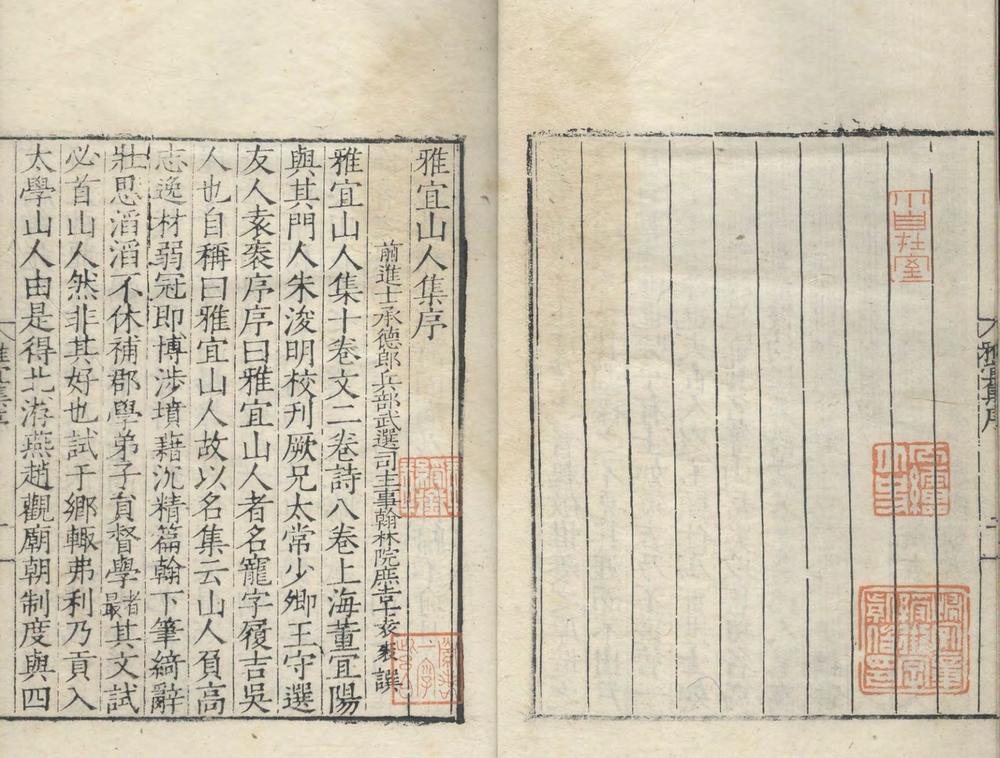 雅宜山人集序
前進士承德郎兵部武選司主事翰林院庶吉士袁袠譔
雅宜山人集十卷文二卷詩八卷上海董宜陽
與其門人朱浚明校刊厥兄太常少卿王守選
友人袁袠序序曰雅宜山人者名寵字履吉吳
人也自稱曰雅宜山人故以名集云山人負高
志逸材弱冠即博涉墳籍沉精篇翰下筆綺辭
壯思滔滔不休補郡學弟子員督學者最其文試
必首山人然非其好也試于鄉輙弗利乃貢入
太學山人由是得北游燕趙觀廟朝制度與四
雅宜集序